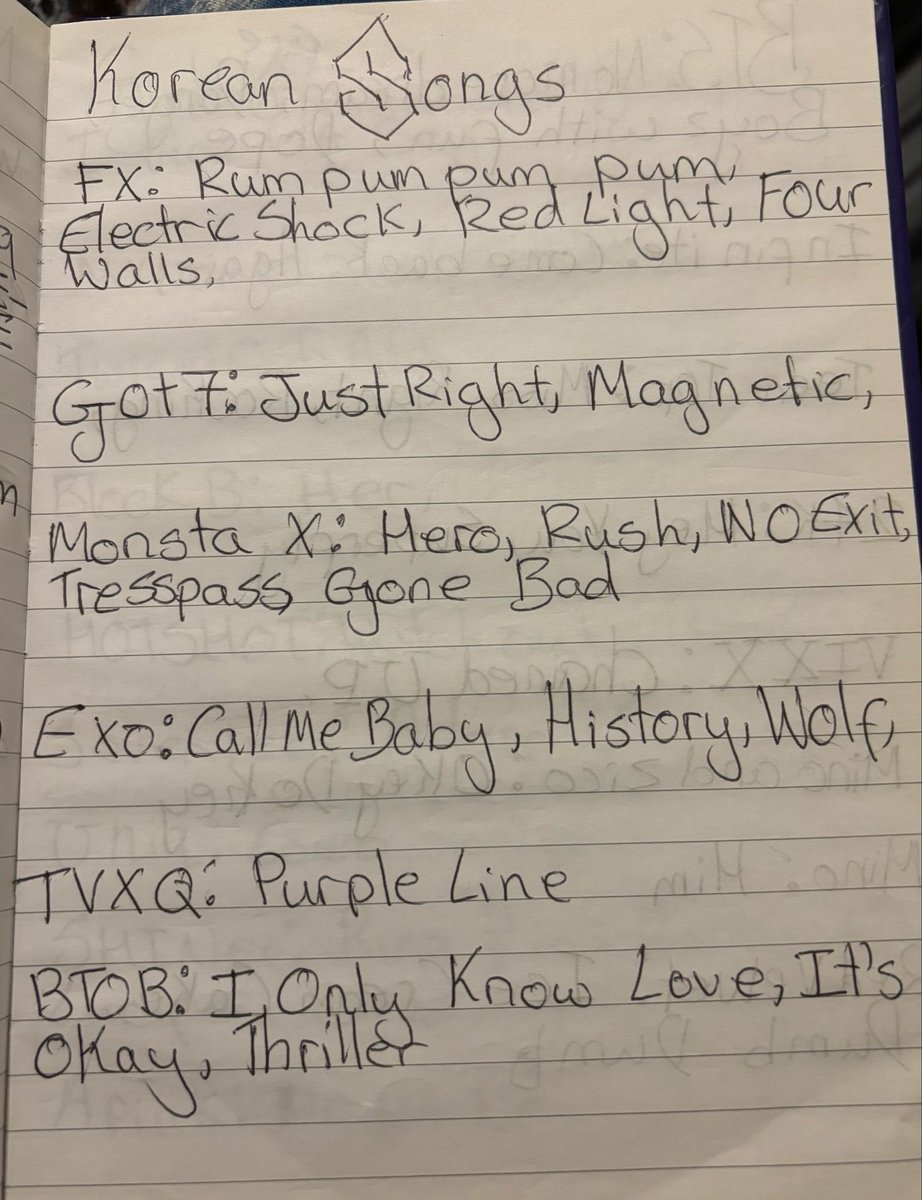 Korean Songs
FX: Rum pum pum pum,
Electric Shock, Red Light, Four
Walls,
Got7: Just Right, Magnetic,
Monsta X: Hero, Rush, NO Exit,
Tresspass, Gone Bad
Exo: Call Me Baby, History, Wolf,
TVXQ: Purple Line
BTOB: I Only Know Love, It's
Okay, Thriller